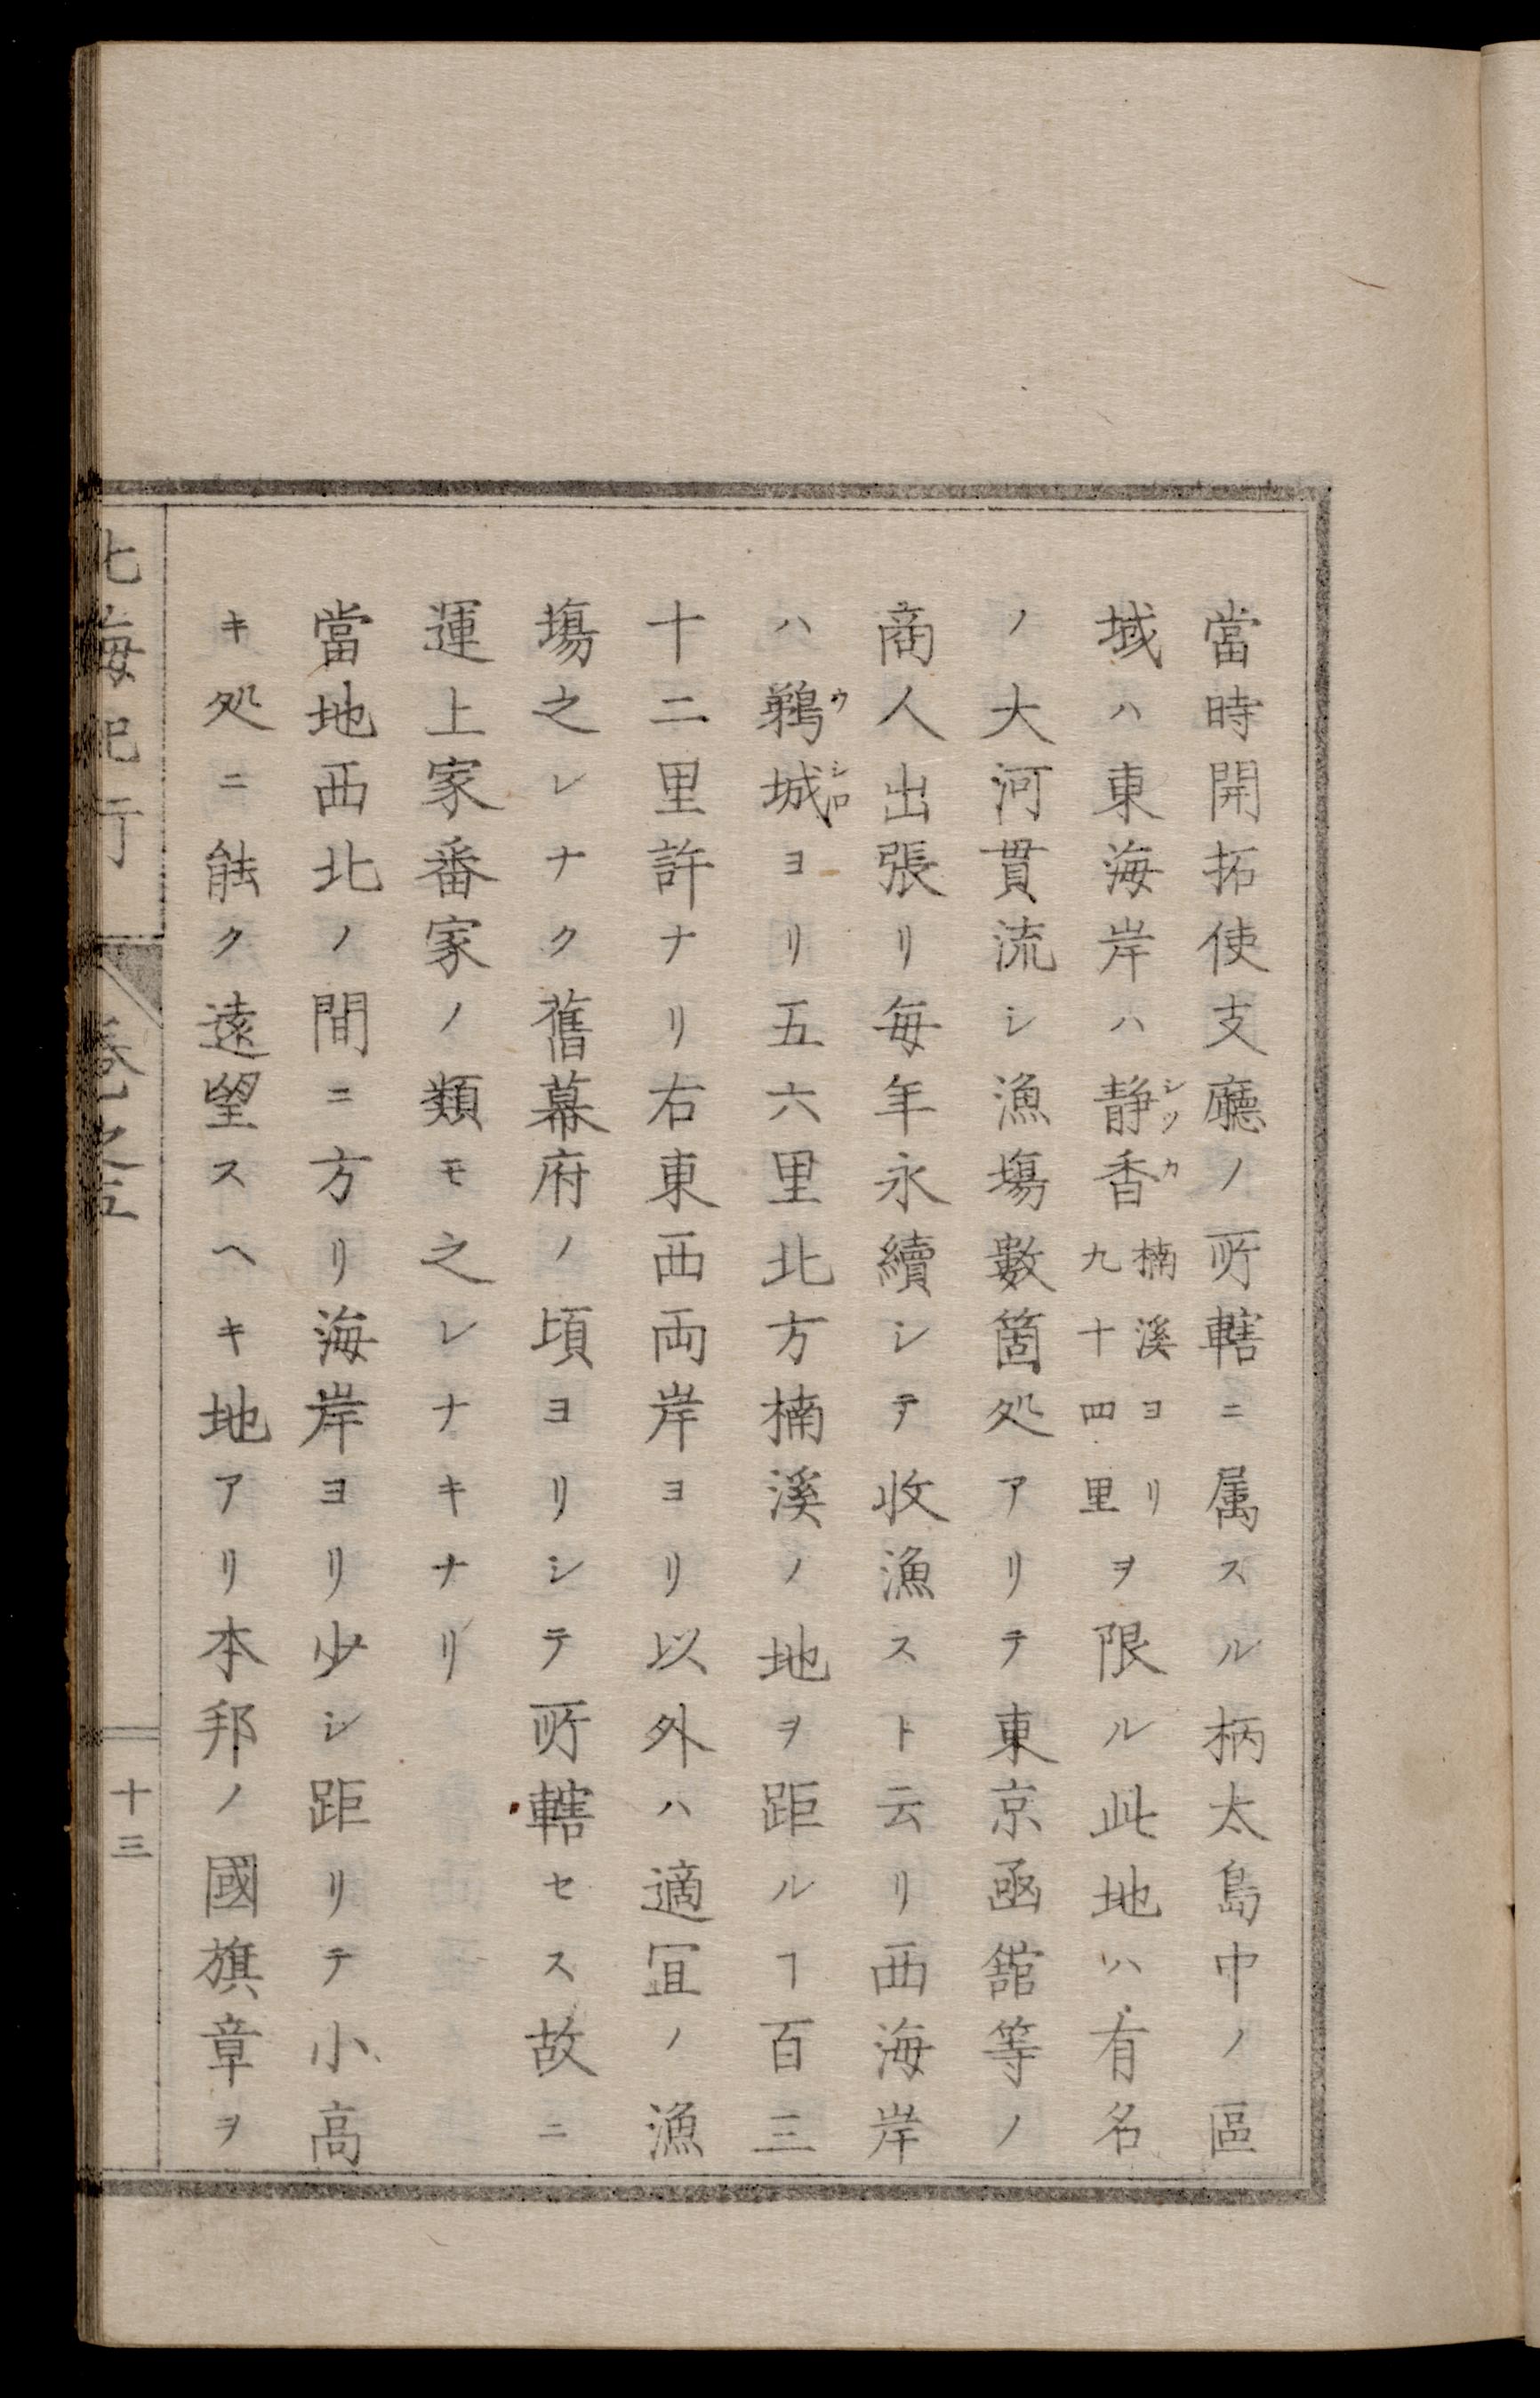 當時開拓使支廳ノ所轄ニ属スル柄太島中ノ區
域ハ東海岸ハ静香楠溪ヨリ九十四里ヲ限ル此地ハ有名
シツカ
ノ大河貫流シ漁塲數箇処アリテ東京凾舘等ノ
商人出張リ毎年永續シテ收漁スト云リ西海岸
ハ鵜城ヨリ五六里北方楠溪ノ地ヲ距ルヿ百三
ウシロ
十二里許ナリ右東西両岸ヨリ以外ハ適冝ノ漁
塲之レナク舊幕府ノ頃ヨリシテ所轄セス故ニ
運上家番家ノ類モ之レナキナリ
當地西北ノ間ニ方リ海岸ヨリ少シ距リテ小高
キ処ニ能ク遠望スヘキ地アリ本邦ノ國旗章ヲ
北海紀行
卷之五
十三